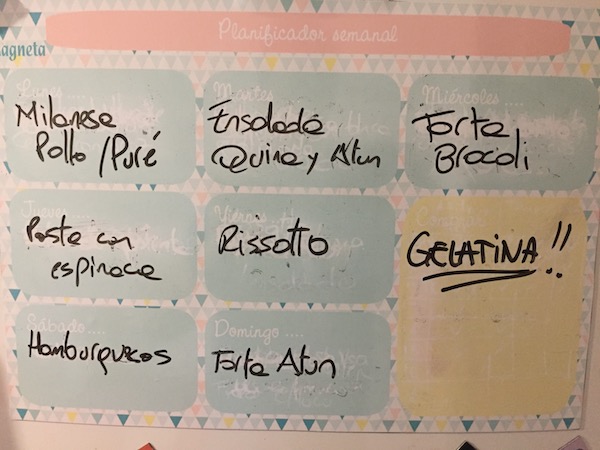 agneta
Planificador semanal
Lunes ....
Milanesa
Pollo / Puré
Martes
Ensalada
Quina y Atun
Miércoles ....
Torta
Brocoli
Jueves
Pasta con
espinaca
Viernes
Rissotto
GELATINA!!
Sábado ....
Hamburguesas
Domingo ....
Torta Atun